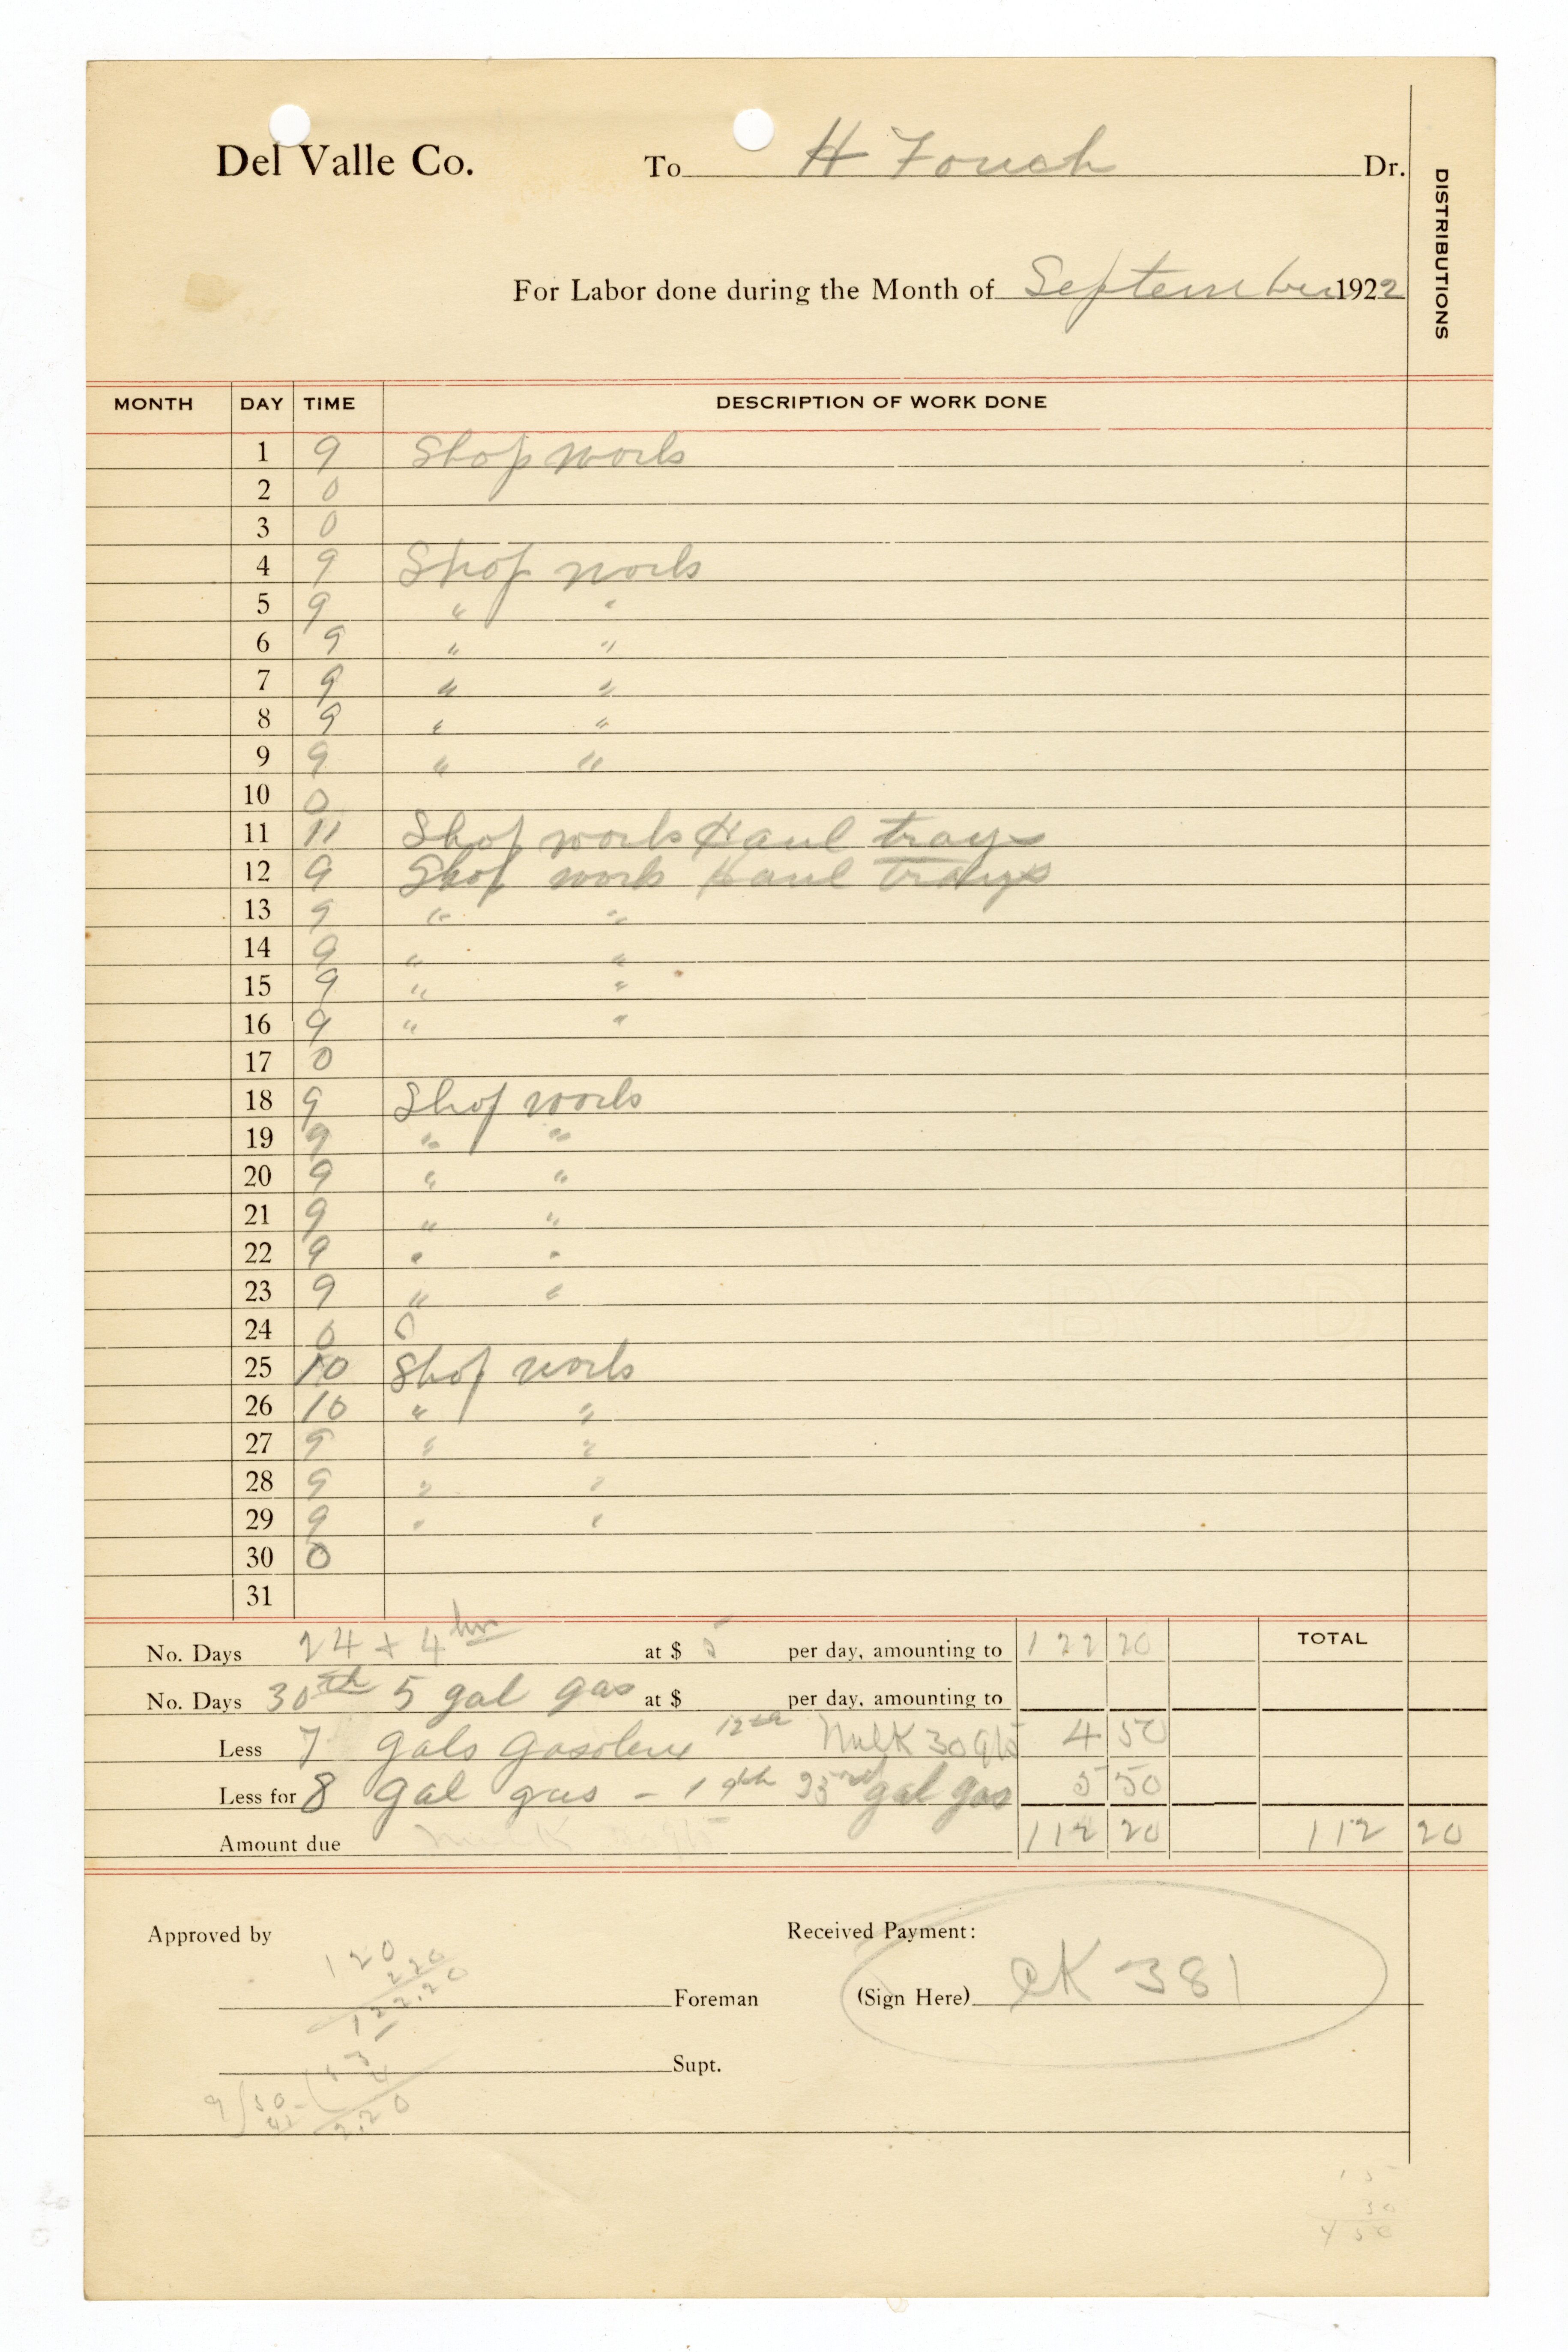 Del Valle Co. To H Fouch Dr.
DISTRIBUTIONS
For Labor done during the Month of September 1922
MONTH DAY TIME DESCRIPTION OF WORK DONE
1 9 Shop work
2 0
3 0
4 9 Shop work
5 9 " "
6 9 " "
7 9 " "
8 9 " "
9 9 " "
10 0
11 11 Shop work Haul trays
12 9 Shop work Haul trays
13 9 " "
14 9 " "
15 9 " "
16 9 " "
17 0
18 9 Shop work
19 9 " "
20 9 " "
21 9 " "
22 9 " "
23 9 " "
24 0 0
25 10 Shop work
26 10 " "
27 9 " "
28 9 " "
29 9 " "
30 0
31
No. Days 24 + 4 hrs at $ 5 per day, amounting to 122 20 TOTAL
No. Days 30th 5 gal gas at $ per day, amounting to
Less 7 gals gasolene 12th Milk 30 qts 4 50
Less for 8 gal gas - 19th 23rd gal gas 5 50
Amount due 112 20 112 20
Approved by Received Payment:
120
2 20
122.20
Foreman (Sign Here) CK 381
Supt.
9 50
45
2.20
15
30
4 50